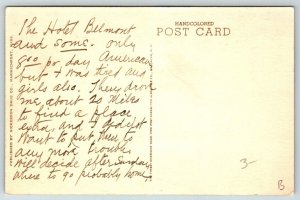 The Hotel Belmont
and some. only
8.00 per day American
but I was tired and
girls also. They drove
me about 20 Miles
to find a place
extra, and I didn't
want to put them to
any more trouble
Will decide after Sunday
where to go probably home.
HANDCOLORED
POST CARD
3-
B